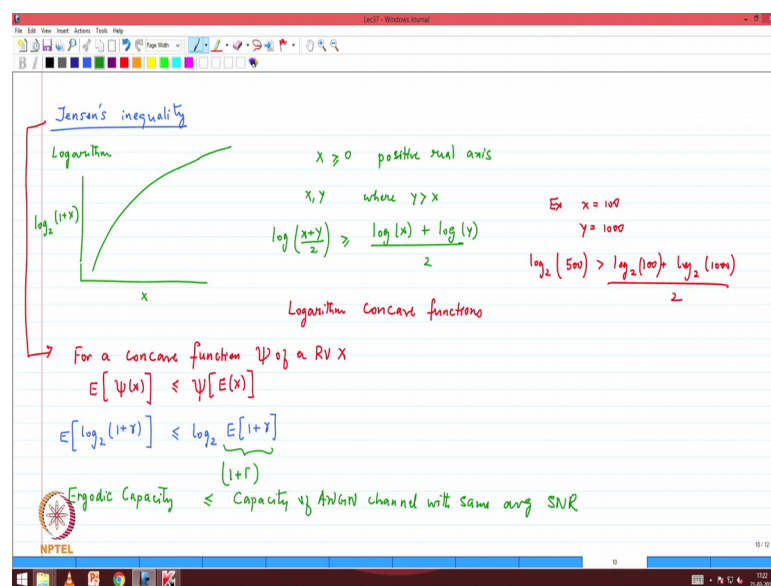 Lec37 - Windows Journal
File Edit View Insert Actions Tools Help
Page Width
B I
Jensen's inequality
Logarithm
log₂(1+x)
x
x ≥ 0 positive real axis
x, y where y > x
log((x+y)/2) ≥ (log(x) + log(y))/2
Ex x = 100
y = 1000
log₂(500) > (log₂(100) + log₂(1000))/2
Logarithm concave functions
For a concave function Ψ of a RV X
E[Ψ(x)] ≤ Ψ[E(x)]
E[log₂(1+γ)] ≤ log₂ E[1+γ]
(1+Γ)
Ergodic Capacity ≤ Capacity of AWGN channel with same avg SNR
NPTEL
10 / 12
10
17:22